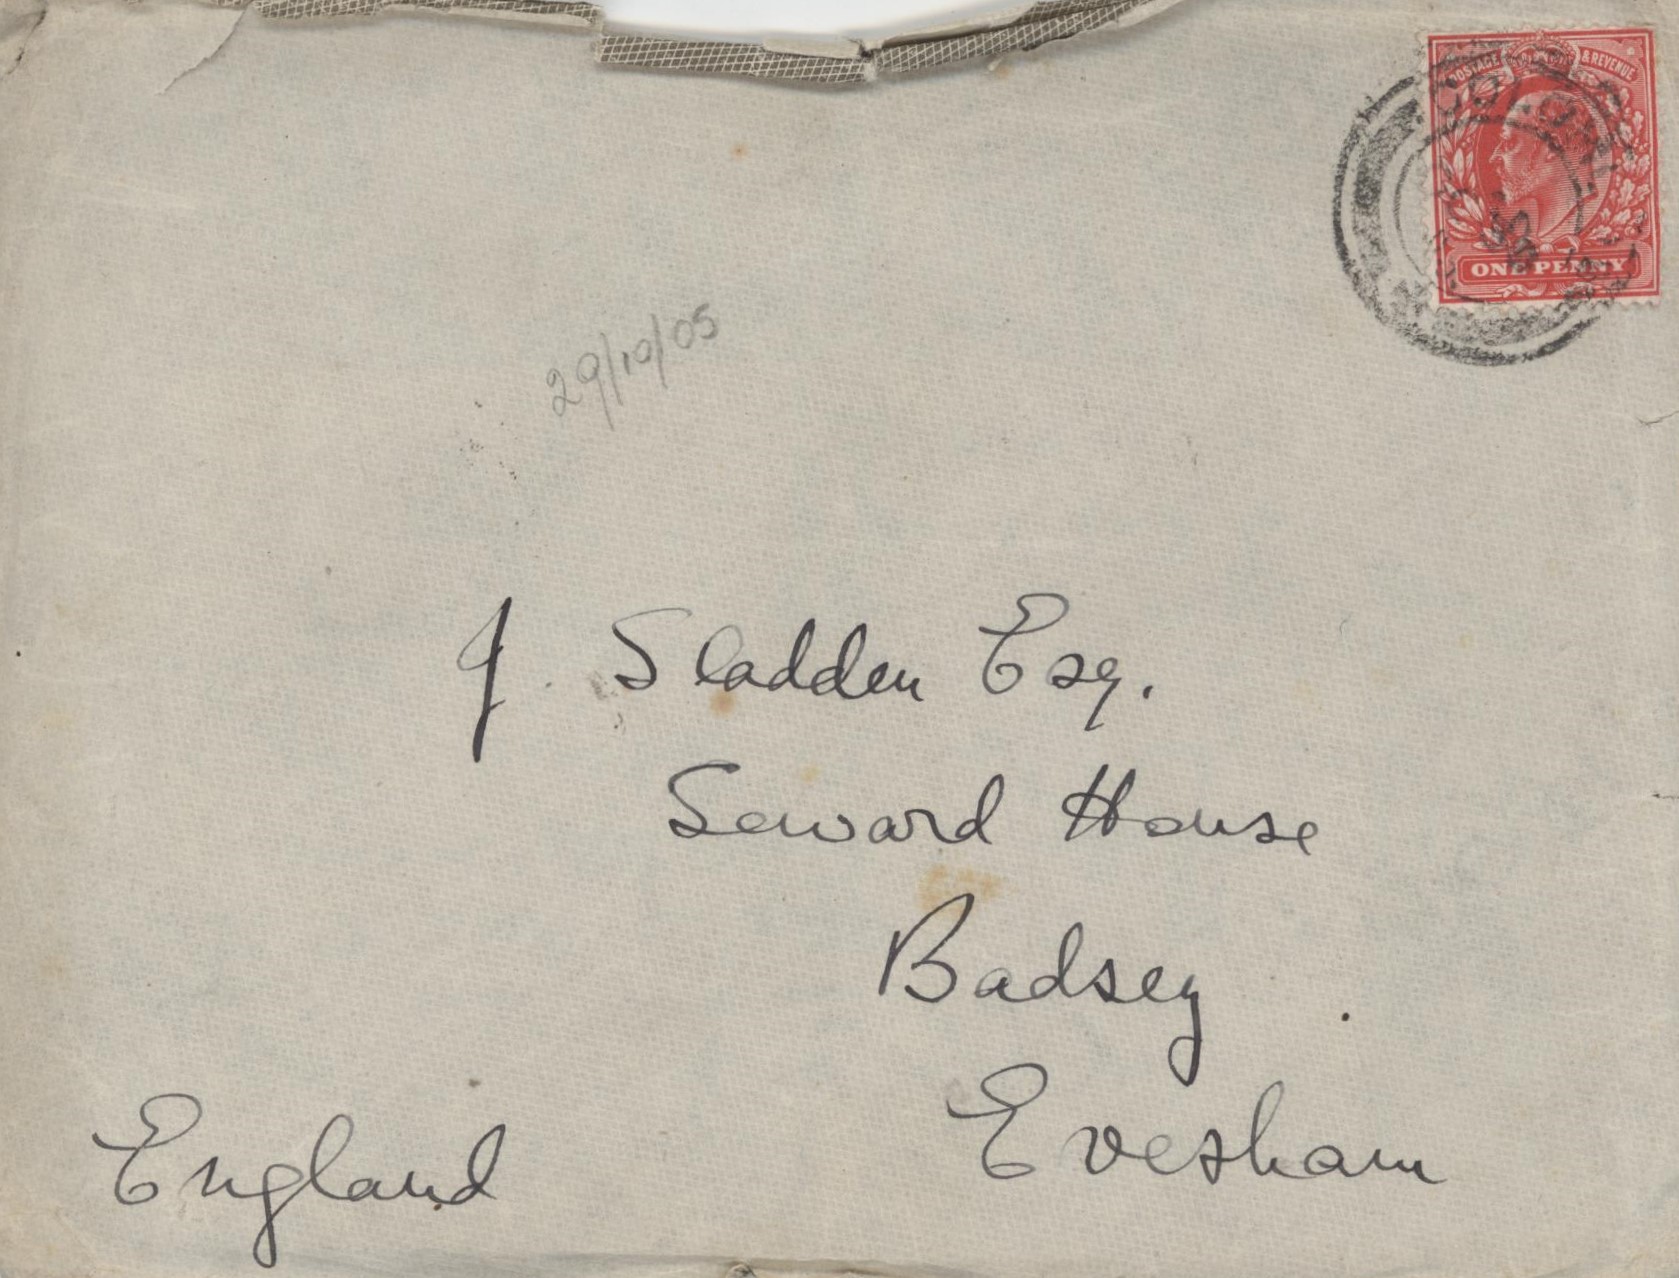 POSTAGE & REVENUE
ONE PENNY
29/10/05
J. Sladden Esq.
Seward House
Badsey
Evesham
England